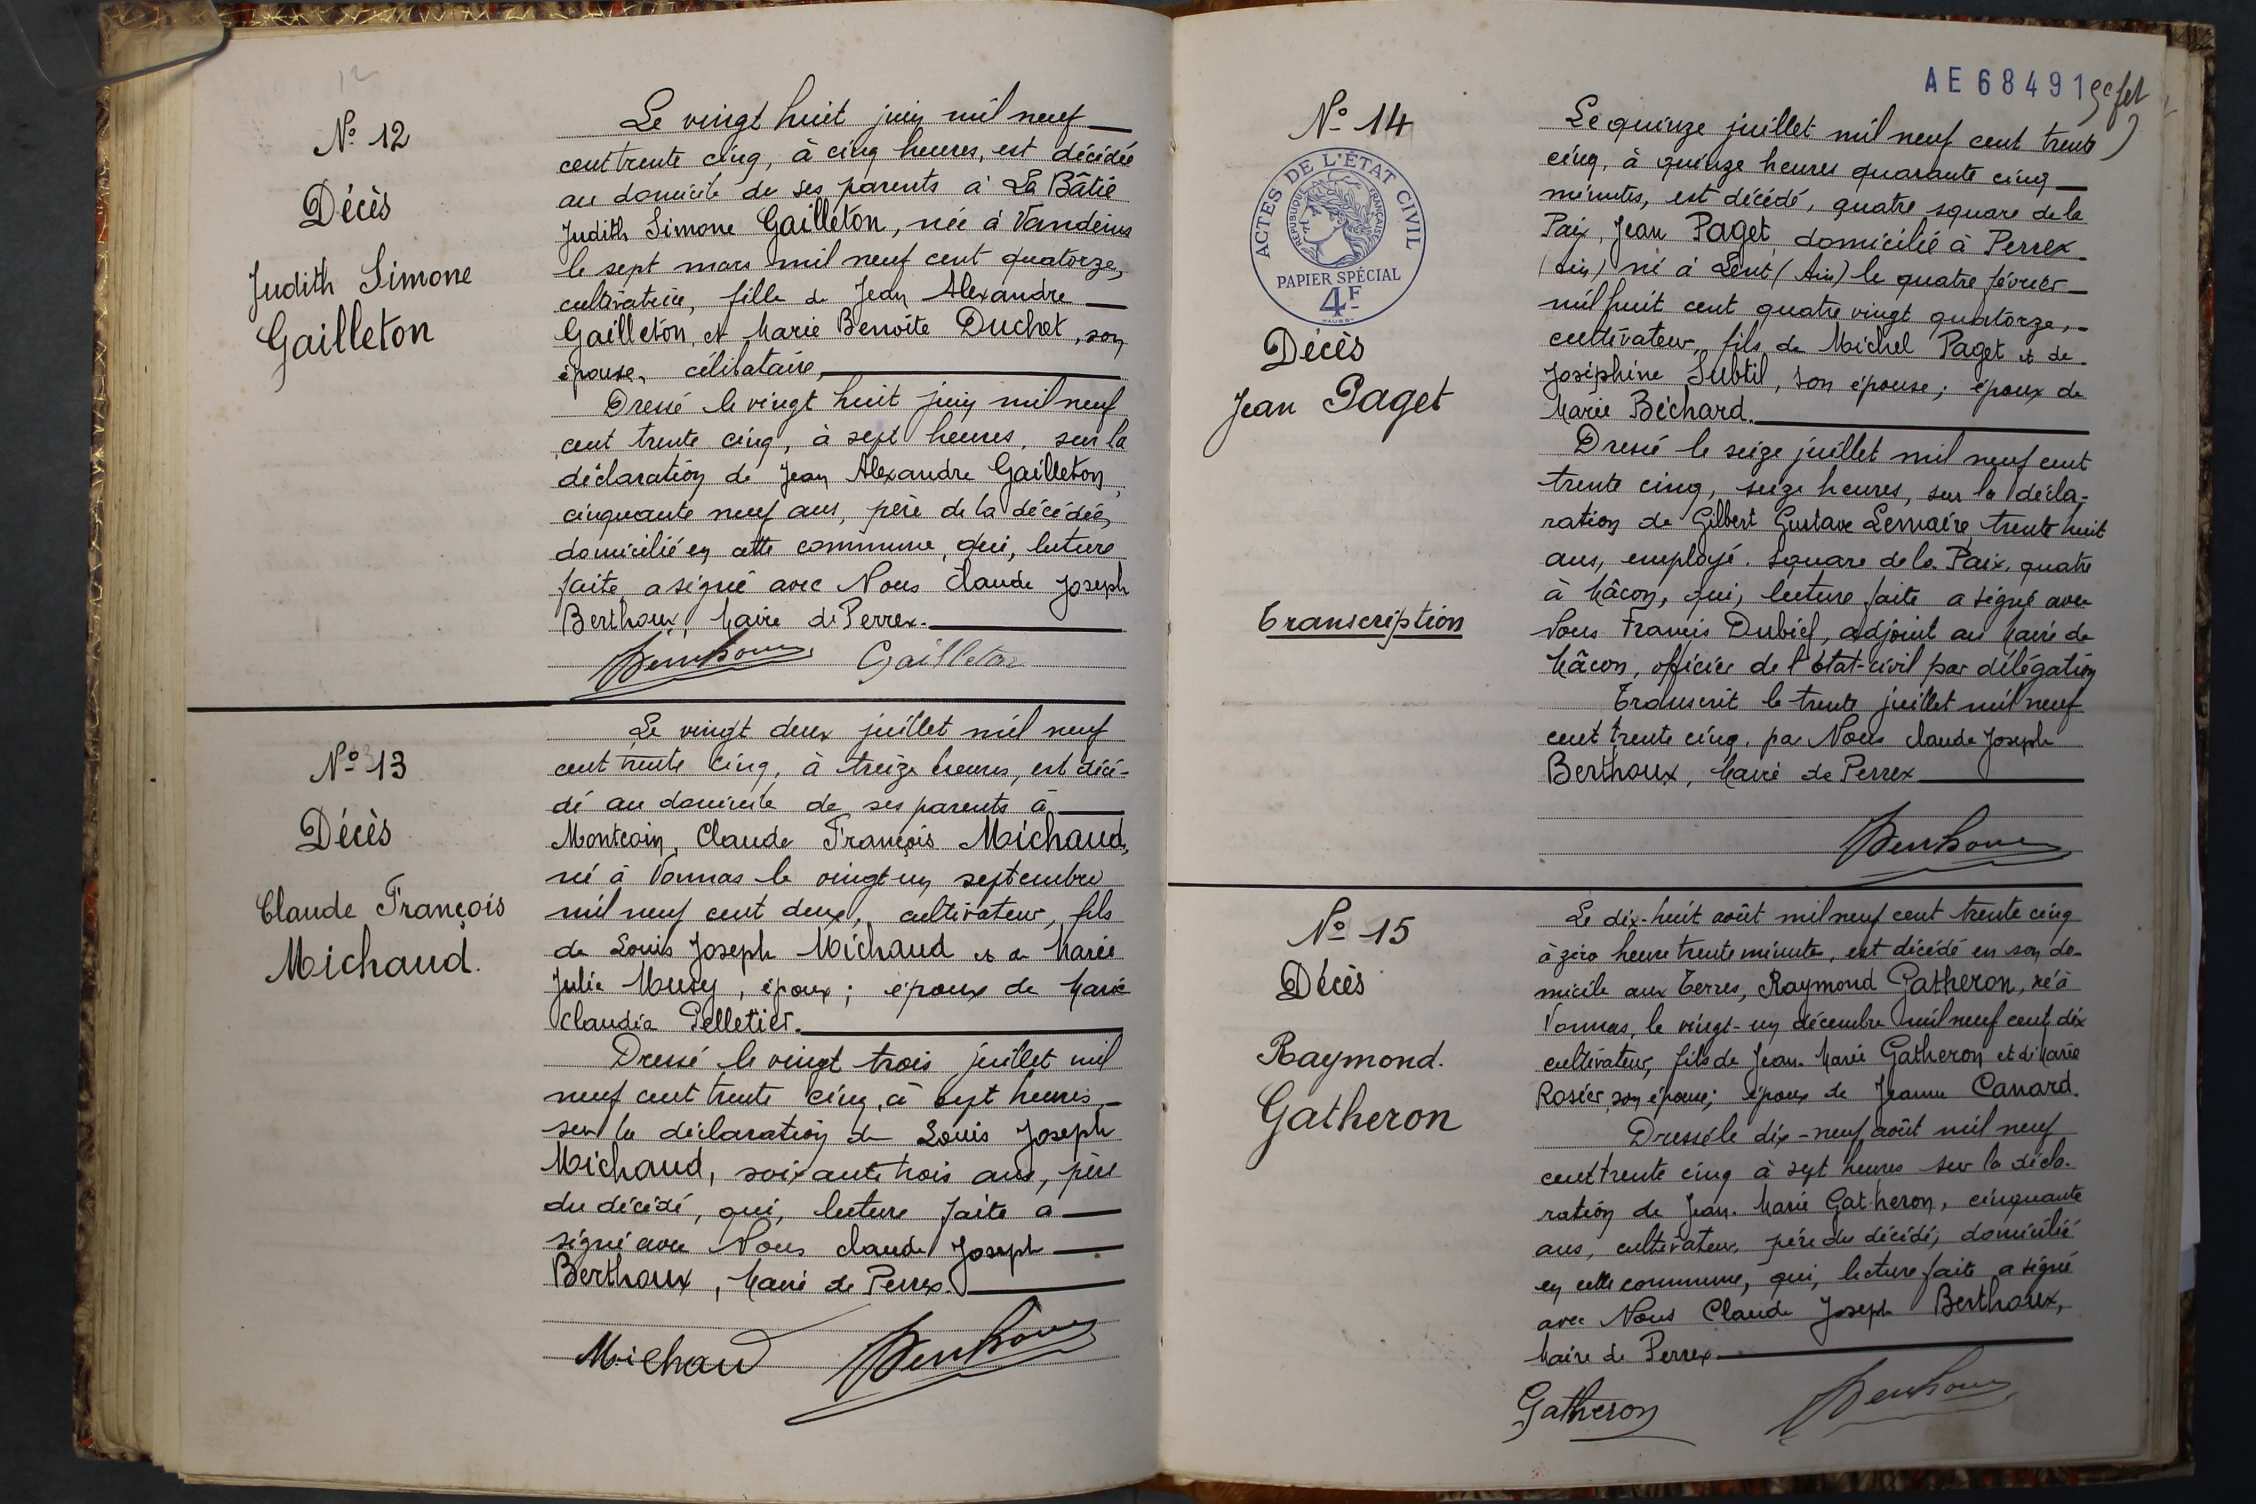 12
Nº 12
Décès
Judith Simone
Gailleton
Le vingt huit juin mil neuf
cent trente cinq, à cinq heures, est décédée
au domicile de ses parents à La Bâtie
Judith Simone Gailleton, née à Vandeins
le sept mars mil neuf cent quatorze,
cultivatrice, fille de Jean Alexandre
Gailleton, et Marie Benoîte Duchet, son
épouse, célibataire,
Dressé le vingt huit juin mil neuf
cent trente cinq, à sept heures, sur la
déclaration de Jean Alexandre Gailleton,
cinquante neuf ans, père de la décédée,
domicilié en cette commune, qui, lecture
faite, a signé avec Nous Claude Joseph
Berthoux, Maire de Perrex.
Berthoux Gailleton
Nº 13
Décès
Claude François
Michaud.
Le vingt deux juillet mil neuf
cent trente cinq, à treize heures, est décé-
dé au domicile de ses parents à
Montcoin, Claude François Michaud,
né à Vonnas le vingt un septembre
mil neuf cent deux, cultivateur, fils
de Louis Joseph Michaud et de Marie
Julie Musy, époux; époux de Marie
Claudia Pelletier.
Dressé le vingt trois juillet mil
neuf cent trente cinq, à sept heures,
sur la déclaration de Louis Joseph
Michaud, soixante trois ans, père
du décédé, qui, lecture faite a
signé avec Nous Claude Joseph
Berthoux, Maire de Perrex.
Michaud Berthoux
AE 68491
Nº 14
ACTES DE L'ÉTAT CIVIL
RÉPUBLIQUE FRANÇAISE
PAPIER SPÉCIAL
4F
Décès
Jean Paget
Transcription
Le quinze juillet mil neuf cent trente
cinq, à quinze heures quarante cinq
minutes, est décédé, quatre square de la
Paix, Jean Paget domicilié à Perrex
(Ain) né à Lent (Ain) le quatre février
mil huit cent quatre vingt quatorze,
cultivateur, fils de Michel Paget et de
Joséphine Subtil, son épouse; époux de
Marie Béchard.
Dressé le seize juillet mil neuf cent
trente cinq, seize heures, sur la décla-
ration de Gilbert Gustave Lemaire, trente huit
ans, employé, square de la Paix, quatre
à Mâcon, qui, lecture faite a signé avec
Nous Francis Dubief, adjoint au Maire de
Mâcon, officier de l'état-civil par délégation
Transcrit le trente juillet mil neuf
cent trente cinq, par Nous Claude Joseph
Berthoux, Maire de Perrex
Berthoux
Nº 15
Décès
Raymond.
Gatheron
Le dix-huit août mil neuf cent trente cinq
à zéro heure trente minutes, est décédé en son do-
micile aux Terres, Raymond Gatheron, né à
Vonnas, le vingt-un décembre mil neuf cent dix
cultivateur, fils de Jean-Marie Gatheron et de Marie
Rosier, son épouse; époux de Jeanne Canard.
Dressé le dix-neuf août mil neuf
cent trente cinq à sept heures sur la décla-
ration de Jean-Marie Gatheron, cinquante
ans, cultivateur, père du décédé, domicilié
en cette commune, qui, lecture faite a signé
avec Nous Claude Joseph Berthoux,
Maire de Perrex
Gatheron Berthoux